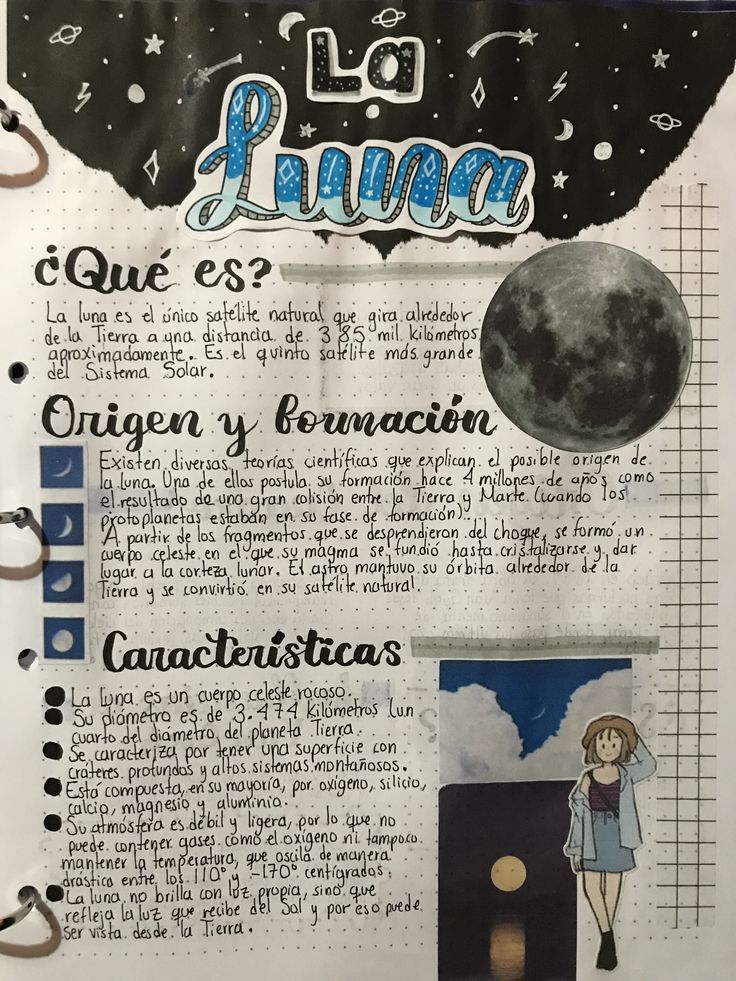 La
Luna
¿Qué es?
La luna es el único satélite natural que gira alrededor
de la Tierra a una distancia de 385 mil kilómetros
aproximadamente. Es el quinto satélite más grande
del Sistema Solar.
Origen y formación
Existen diversas teorías científicas que explican el posible origen de
la luna. Una de ellos postula su formación hace 4 millones de años como
el resultado de una gran colisión entre la Tierra y Marte (cuando los
protoplanetas estaban en su fase de formación).
A partir de los fragmentos que se desprendieron del choque, se formó un
cuerpo celeste en el que su magma se fundió hasta cristalizarse y dar
lugar a la corteza lunar. El astro mantuvo su órbita alrededor de la
Tierra y se convirtió en su satélite natural.
Características
La luna es un cuerpo celeste rocoso.
Su diámetro es de 3.474 kilómetros (un
cuarto del diámetro del planeta Tierra.
Se caracteriza por tener una superficie con
cráteres profundos y altos sistemas montañosos.
Está compuesta, en su mayoría, por oxígeno, silicio,
calcio, magnesio y aluminio.
Su atmósfera es débil y ligera, por lo que no
puede contener gases como el oxígeno ni tampoco
mantener la temperatura, que oscila de manera
drástica entre los 110° y -170° centígrados.
La luna no brilla con luz propia, sino que
refleja la luz que recibe del Sol y por eso puede
ser vista desde la Tierra.